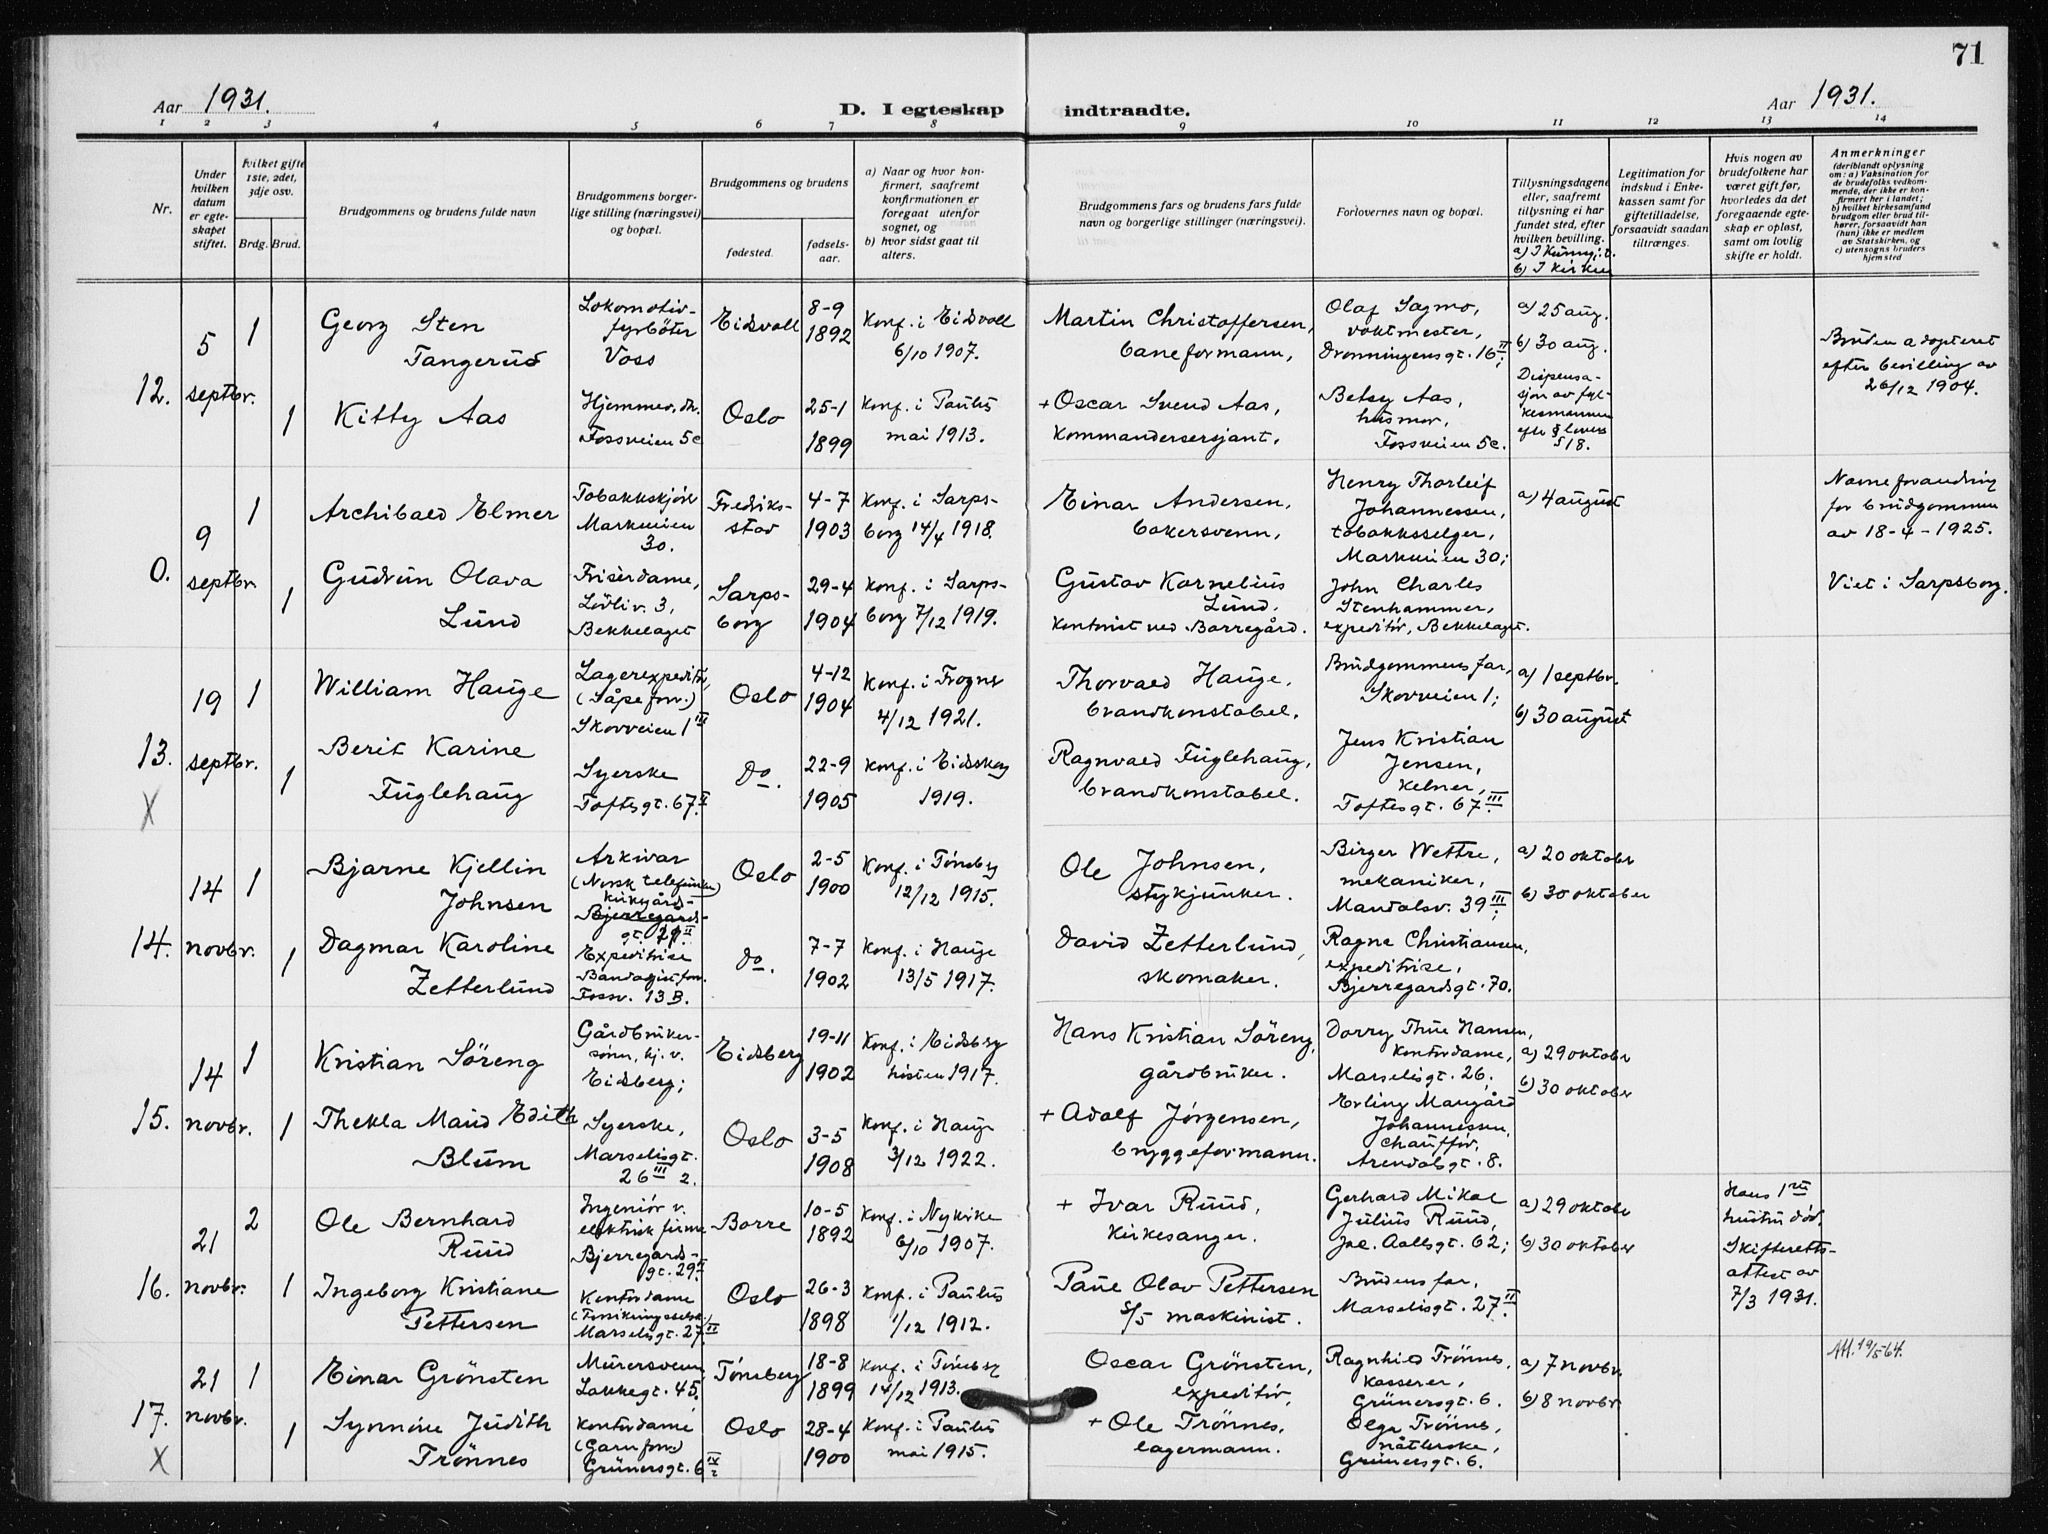 71
Aar 1931.
D. I egteskap indtraadte.
Aar 1931.
1 2 3 4 5 6 7 8 9 10 11 12 13 14
Nr.
Under hvilken datum er egteskapet stiftet.
hvilket gifte 1ste, 2det, 3dje osv.
Brdg. Brud.
Brudgommens og brudens fulde navn
Brudgommens borgerlige stilling (næringsvei) og bopæl.
Brudgommens og brudens
fødested.
fødselsaar.
a) Naar og hvor konfirmert, saafremt konfirmationen er foregaat utenfor sognet, og
b) hvor sidst gaat til alters.
Brudgommens fars og brudens fars fulde navn og borgerlige stillinger (næringsvei).
Forlovernes navn og bopæl.
Tillysningsdagene eller, saafremt tillysning ei har fundet sted, efter hvilken bevilling.
b) I kirken
Legitimation for indskud i Enkekassen samt for giftetilladelse, forsaavidt saadan tiltrænges.
Hvis nogen av brudefolkene har været gift før, hvorledes da det foregaaende egteskap er opløst, samt om lovlig skifte er holdt.
Anmerkninger
(deriblandt oplysning om: a) Vaksination for de brudefolks vedkommende, der ikke er konfirmert her i landet;
b) hvilket kirkesamfund brudgom eller brud tilhører, forsaavidt han (hun) ikke er medlem av Statskirken, og
c) utensogns bruders hjemsted
12.
5 septbr.
1
Georg Sten
Tangerud
Lokomotiv-
fyrbøter
Voss
Eidsvoll
8-9
1892
Konf. i Eidsvoll
6/10 1907.
Martin Christoffersen,
baneformann,
Olaf Sagmo,
voktmester,
Dronningensgt. 16 II;
a) 25 aug.
b) 30 aug.
Bruden adopteret
efter bevilling av
26/12 1904.
1
Kitty Aas
Hjemmev. dtr.
Fossveien 5c
Oslo
25-1
1899
Konf. i Paulus
mai 1913.
+ Oscar Svend Aas,
kommandersersjant,
Betsy Aas,
husmor,
Fossveien 5c.
Dispensa-
sjon av fyl-
kesmannen
§ 18.
0.
9 septbr.
1
Archibald Elmer
Tobakkskjør.
Markveien
30.
Fredrik-
stad
4-7
1903
Konf. i Sarps-
borg 14/4 1918.
Einar Andersen,
bakersvenn,
Henry Thorleif
Johannessen,
tobakksselger,
Markveien 30;
a) 4 august
Navneforandring
for brudgommen
av 18-4-1925.
1
Gudrun Olava
Lund
Frisørdame,
Lødliv. 3,
Bekkelaget
Sarps-
borg
29-4
1904
Konf. i Sarps-
borg 7/12 1919.
Gustav Kornelius
Lund.
kontorist ved Borregård.
John Charles
Stenhammer,
expeditør, Bekkelaget.
Viet i Sarpsborg.
13.
X
19 septbr.
1
William Hauge
Lagerexpeditør,
(Såpeforr.)
Skovveien 1 III
Oslo
4-12
1904
Konf. i Frogner
4/12 1921.
Thorvald Hauge,
brandkonstabel.
Brudgommens far,
Skovveien 1;
a) 1 septbr.
b) 30 august
1
Berit Karine
Fuglehaug
Syerske
Toftesgt. 67 II
Do.
22-9
1905
Konf. i Eidskog
1919.
Ragnvald Fuglehaug,
brandkonstabel.
Jens Kristian
Jensen,
kelner,
Toftesgt. 67 III.
14.
14 novbr.
1
Bjarne Kjellin
Johnsen
Arkivar
(Norsk telefunken)
kirkgård-
Bjerregards-
gt. 29 II
Oslo
2-5
1900
Konf. i Tønsberg
12/12 1915.
Ole Johnsen,
stykjunker.
Birger Wettre,
mekaniker,
Mandalsv. 39 III;
a) 20 oktober
b) 30 oktober
1
Dagmar Karoline
Zetterlund
Expeditrise
Bandagistforr.
Fossv. 13 B.
Do.
7-7
1902
Konf. i Hauge
13/5 1917.
David Zetterlund,
skomaker.
Ragna Christiansen,
expeditrise,
Bjerregardsgt. 70.
15.
14 novbr.
1
Kristian Söreng
Gårdbruker-
sønn, hj. v.
Eidsberg;
Eidsberg
19-11
1902
Konf. i Eidsberg
høsten 1917.
Hans Kristian Söreng,
gårdbruker.
Dorry Thue Hansen,
kontordame,
Marselisgt. 26;
a) 29 oktober
b) 30 oktober
1
Thekla Maud Edith
Blum
Syerske,
Marselisgt.
26 III 2.
Oslo
3-5
1908
Konf. i Hauge
3/12 1922.
+ Adolf Jørgensen,
bryggeformann.
Erling Maugård
Johannessen,
chauffør,
Arendalsgt. 8.
16.
21 novbr.
2
Ole Bernhard
Ruud
Ingeniør v.
elektrisk firma
Bjerregards-
gt. 29 II
Borre
10-5
1892
Konf. i Nykirke
6/10 1907.
+ Ivar Ruud,
kirkesanger.
Gerhard Mikal
Julius Ruud,
Jac. Aallsgt. 62;
a) 29 oktober
b) 30 oktober
Hans 1ste
hustru død.
Skifteretts-
attest av
7/3 1931.
1
Ingeborg Kristiane
Pettersen
Kontordame
(Forsikringsselsk.)
Marselisgt. 27 II
Oslo
26-3
1898
Konf. i Paulus
1/12 1912.
Paul Olav Pettersen
S/S maskinist.
Brudens far,
Marselisgt. 27 II.
17.
X
21 novbr.
1
Einar Grönsten
Murersvenn
Lakkegt. 45.
Tønsberg
18-8
1899
Konf. i Tønsberg
14/12 1913.
Oscar Grönsten,
expeditör,
Ragnhild Trönnes,
kasserer,
Grünersgt. 6.
a) 7 novbr.
b) 8 novbr.
Att. 19/5 64.
1
Synnöve Judith
Trönnes
Kontordame
(Garnforr.)
Grünersgt. 6 IV
Oslo
28-4
1900
Konf. i Paulus
mai 1915.
+ Ole Trönnes,
lagermann.
Olga Trönnes,
nåtlerske,
Grünersgt. 6.